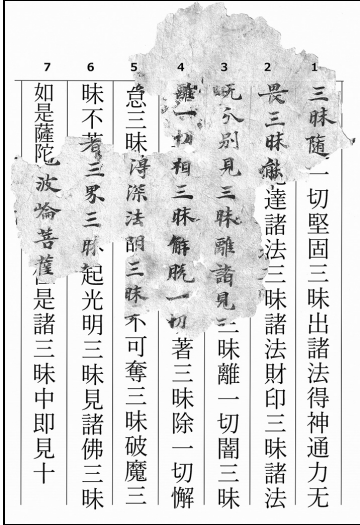 7 6 5 4 3 2 1
三昧隨一切堅固三昧出諸法得神通力无
畏三昧能達諸法三昧諸法財印三昧諸法
无分別見三昧離諸見三昧離一切闇三昧
離一切相三昧解脫一切著三昧除一切懈
怠三昧得深法明三昧不可奪三昧破魔三
昧不著三界三昧起光明三昧見諸佛三昧
如是薩陀波崙菩薩住是諸三昧中即見十